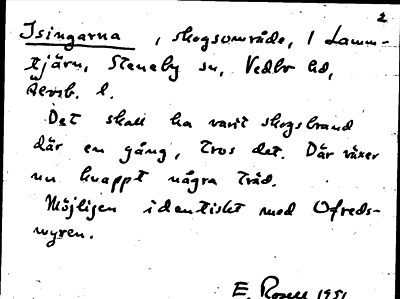 2
Isingarna, skogsområde, i Lamm-
tjärn, Steneby sn, Vedbo hd,
Älvsb. l.
Det skall ha varit skogsbrand
där en gång, tros det. Där växer
nu knappt några träd.
Möjligen identiskt med Ofreds-
myren.
E. Rosell 1951